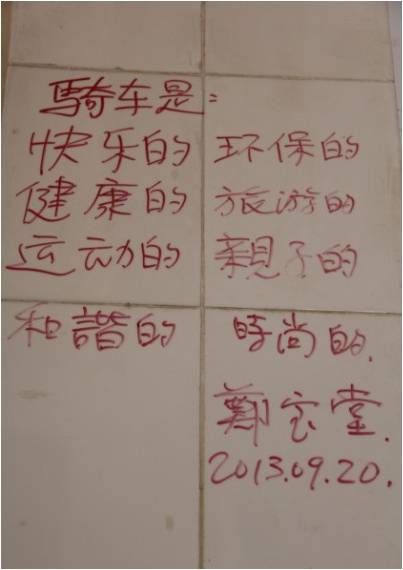 騎车是:
快乐的 环保的
健康的 旅游的
运动的 親子的
和諧的 時尚的.
鄭宝堂.
2013.09.20.